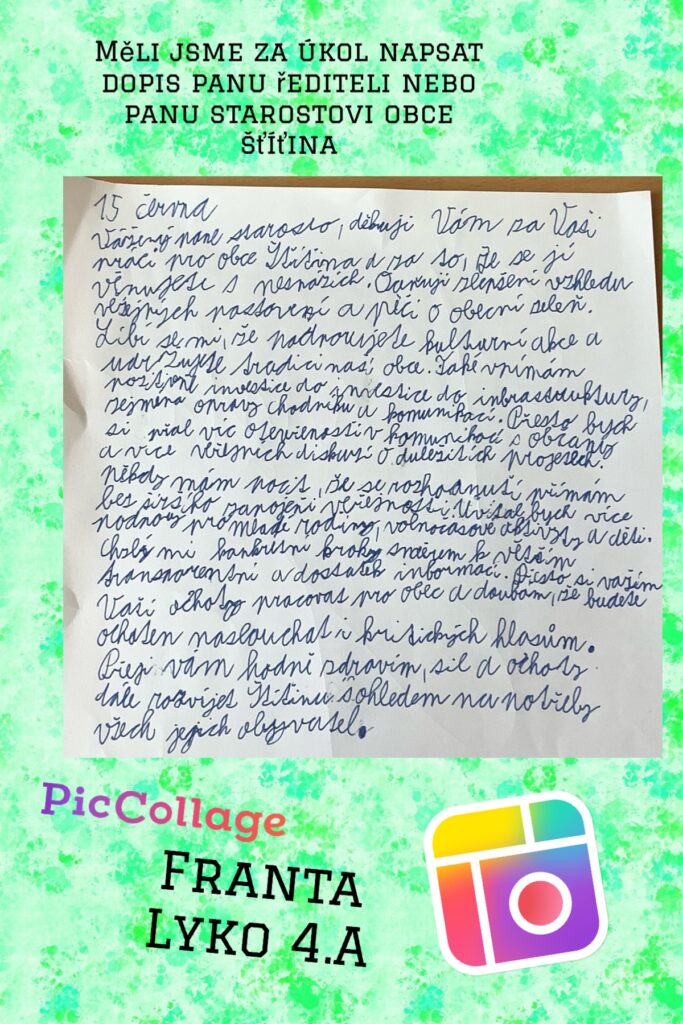 Měli jsme za úkol napsat
dopis panu řediteli nebo
panu starostovi obce
Šťítina
15 června
Vážený pane starosto, děkuji Vám za Vaši
práci pro obce Štítina a za to, že se jí
věnujete s nesnázích. Oceňuji zlepšení vzhledu
veřejných nastavení a péči o obecní zeleň.
Líbí se mi, že podporujete kulturní akce a
udržujete tradici naší obce. Také vnímám
pozitivně investice do investice do infrastruktury,
zejména opravy chodníku a komunikací. Přesto bych
si přal víc otevřenosti v komunikaci s občany
a více veřejných diskusí o důležitích projetech.
někdy mám pocit, že se rozhodnutí přímám
bez širšího zapojení veřejnosti. Uvítal bych více
podpory pro mladé rodiny, volnočasové aktivity a děti.
Chybý mi konkrétní kroky směrem k větším
transparentní a dostatek informací. Přesto si vážím
Vaší ochoty pracovat pro obec a doufám, že budete
ochoten naslouchat i kritických hlasům.
Přeji vám hodně zdravím, sil a ochoty
dále rozvíjet Štítinu s ohledem na potřeby
všech jejich obyvatel.
PicCollage
Franta
Lyko 4.A